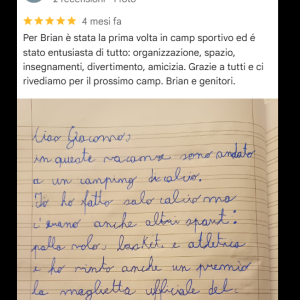 4 mesi fa
Per Brian è stata la prima volta in camp sportivo ed é
stato entusiasta di tutto: organizzazione, spazio,
insegnamenti, divertimento, amicizia. Grazie a tutti e ci
rivediamo per il prossimo camp. Brian e genitori.
Ciao Giacomo,
in queste vacanze sono andato
a un camping di calcio.
Io ho fatto solo calcio ma
c'erano anche altri sport:
palla volo, basket e atletica
e ho vinto anche un premio
la maglietta ufficiale del